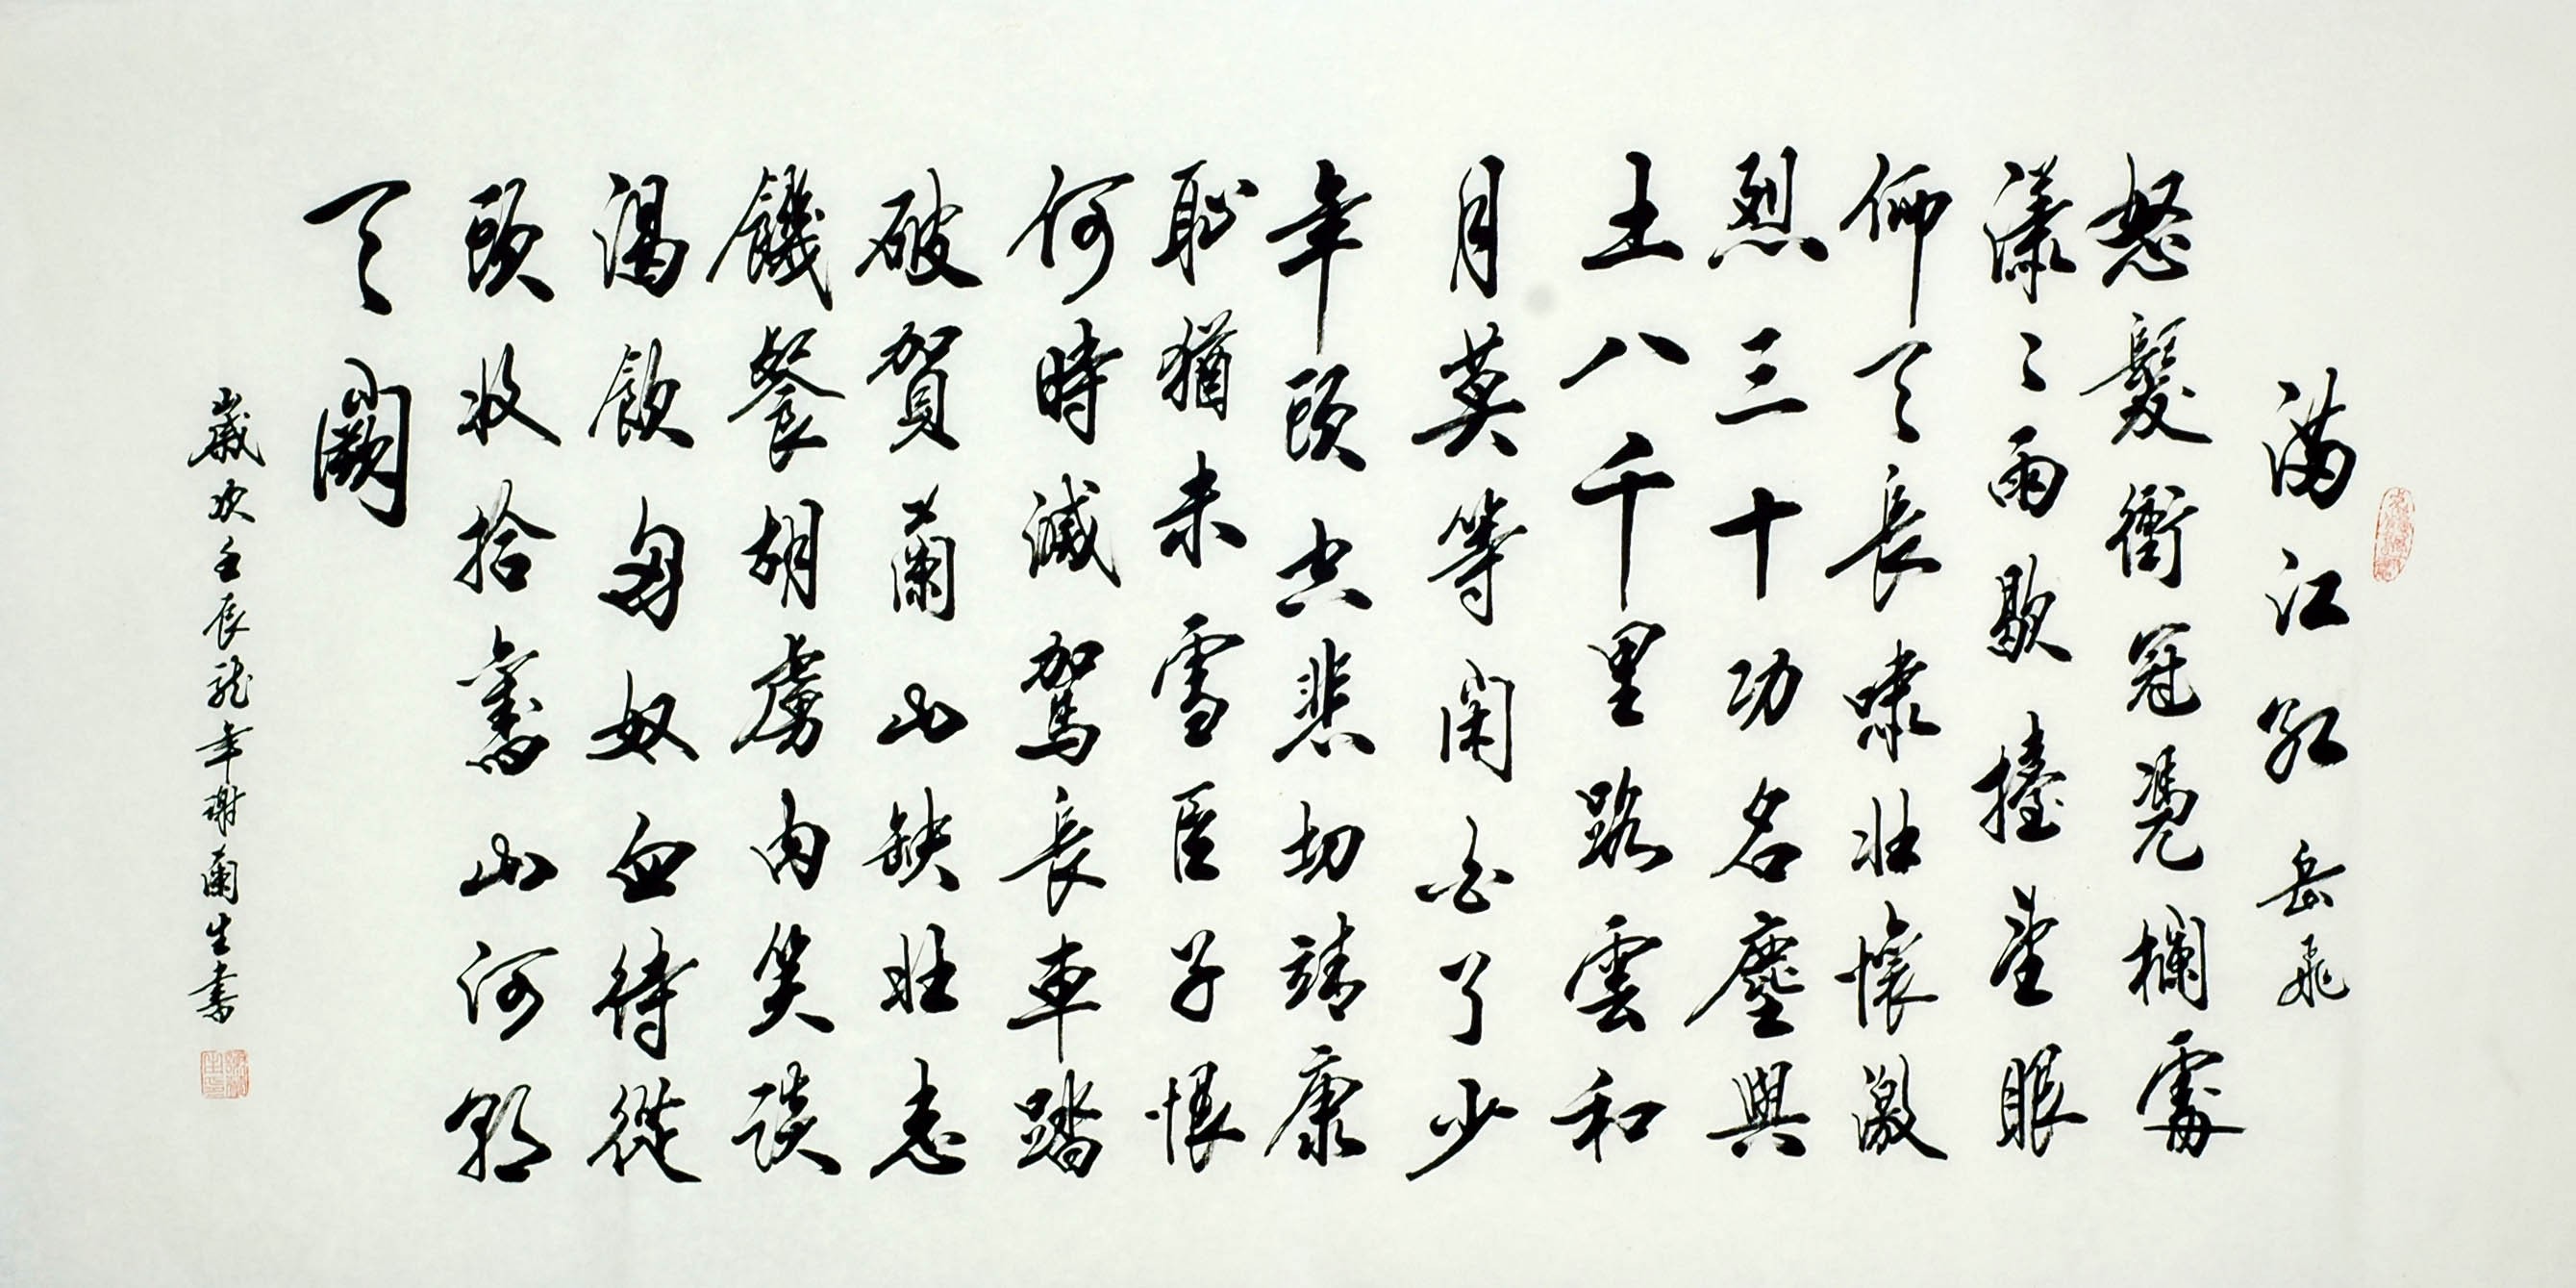 滿江紅 岳飛
怒髮衝冠憑欄處
瀟々雨歇擡望眼
仰天長嘯壯懷激
烈三十功名塵與
土八千里路雲和
月莫等閑白了少
年頭空悲切靖康
耻猶未雪臣子恨
何時滅駕長車踏
破賀蘭山缺壯志
饑餐胡虜肉笑談
渴飲匈奴血待從
頭收拾舊山河朝
天闕
歲次壬辰龍年謝蘭生書